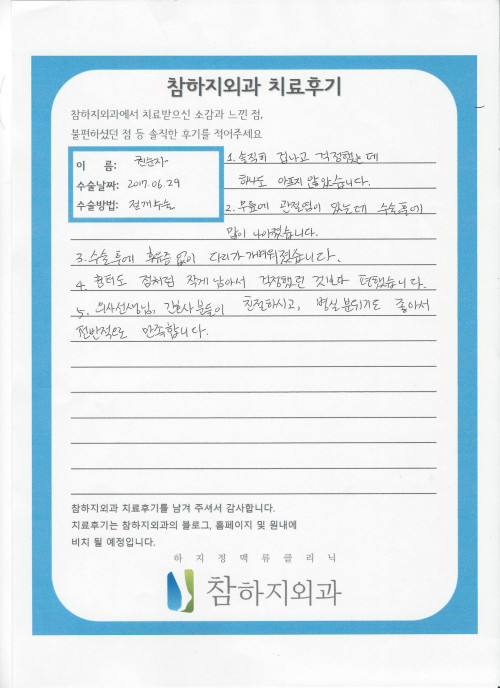 참하지외과 치료후기
참하지외과에서 치료받으신 소감과 느낀 점,
불편하셨던 점 등 솔직한 후기를 적어주세요
이 름: 권순자
수술날짜: 2017.06.29
수술방법: 절개수술
1. 솔직히 겁나고 걱정했는데
하나도 아프지 않았습니다.
2. 무릎에 관절염이 있는데 수술후에
많이 나아졌습니다.
3. 수술후에 후유증 없이 다리가 가벼워졌습니다.
4. 흉터도 점처럼 작게 남아서 걱정했던 것보다 편했습니다.
5. 의사선생님, 간호사분들이 친절하시고, 병실 분위기도 좋아서
전반적으로 만족합니다.
참하지외과 치료후기를 남겨 주셔서 감사합니다.
치료후기는 참하지외과의 블로그, 홈페이지 및 원내에
비치 될 예정입니다.
하지정맥류클리닉
참하지외과